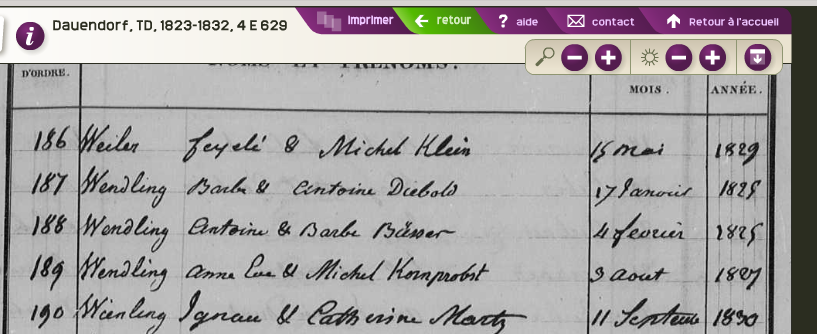 Dauendorf, TD, 1823-1832, 4 E 629
imprimer
retour
aide
contact
Retour à l'accueil
D'ORDRE.
NOMS ET PRÉNOMS.
MOIS.
ANNÉE.
186 Weiler & Michel Klein 15 mai 1829
187 Wendling Barbe & Antoine Diebold 17 Janvier 1825
188 Wendling Antoine & Barbe Bässer 4 fevrier 1825
189 Wendling Anne Eve & Michel Kornprobst 3 aout 1827
190 Ignace & Catherine Martz 11 Septembre 1830